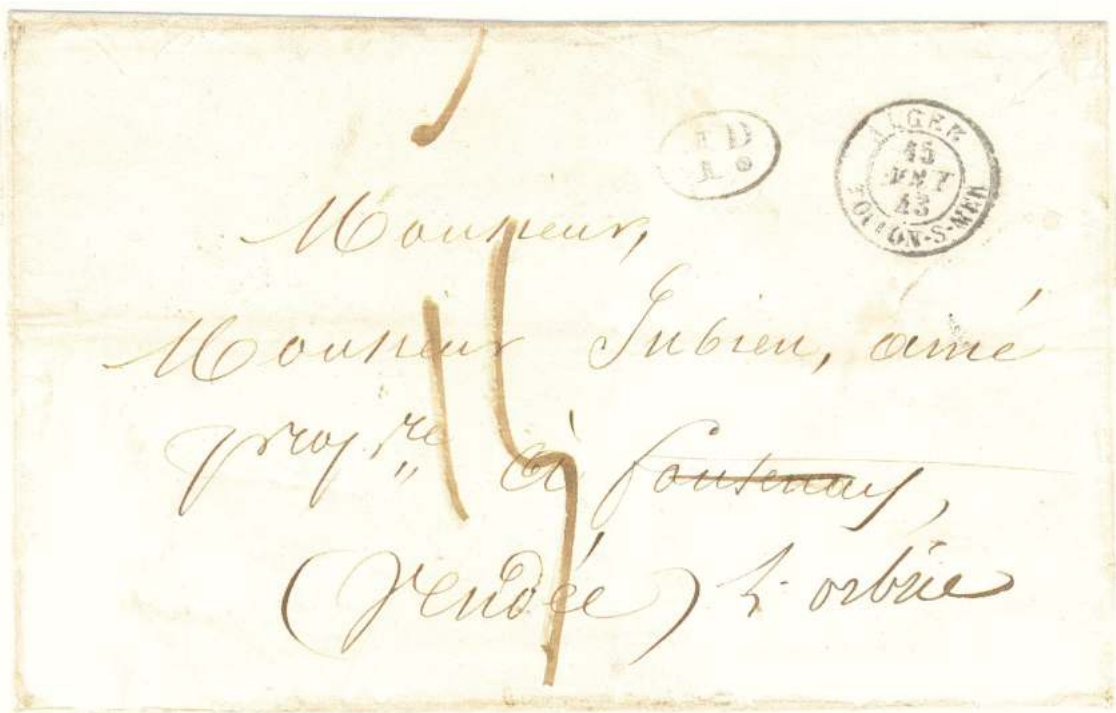 ALGER
15
43
TOULON-S-MER
Monsieur,
Monsieur Jubien, ainé
prop.re à fontenay,
(Vendée) L'orbrie
15